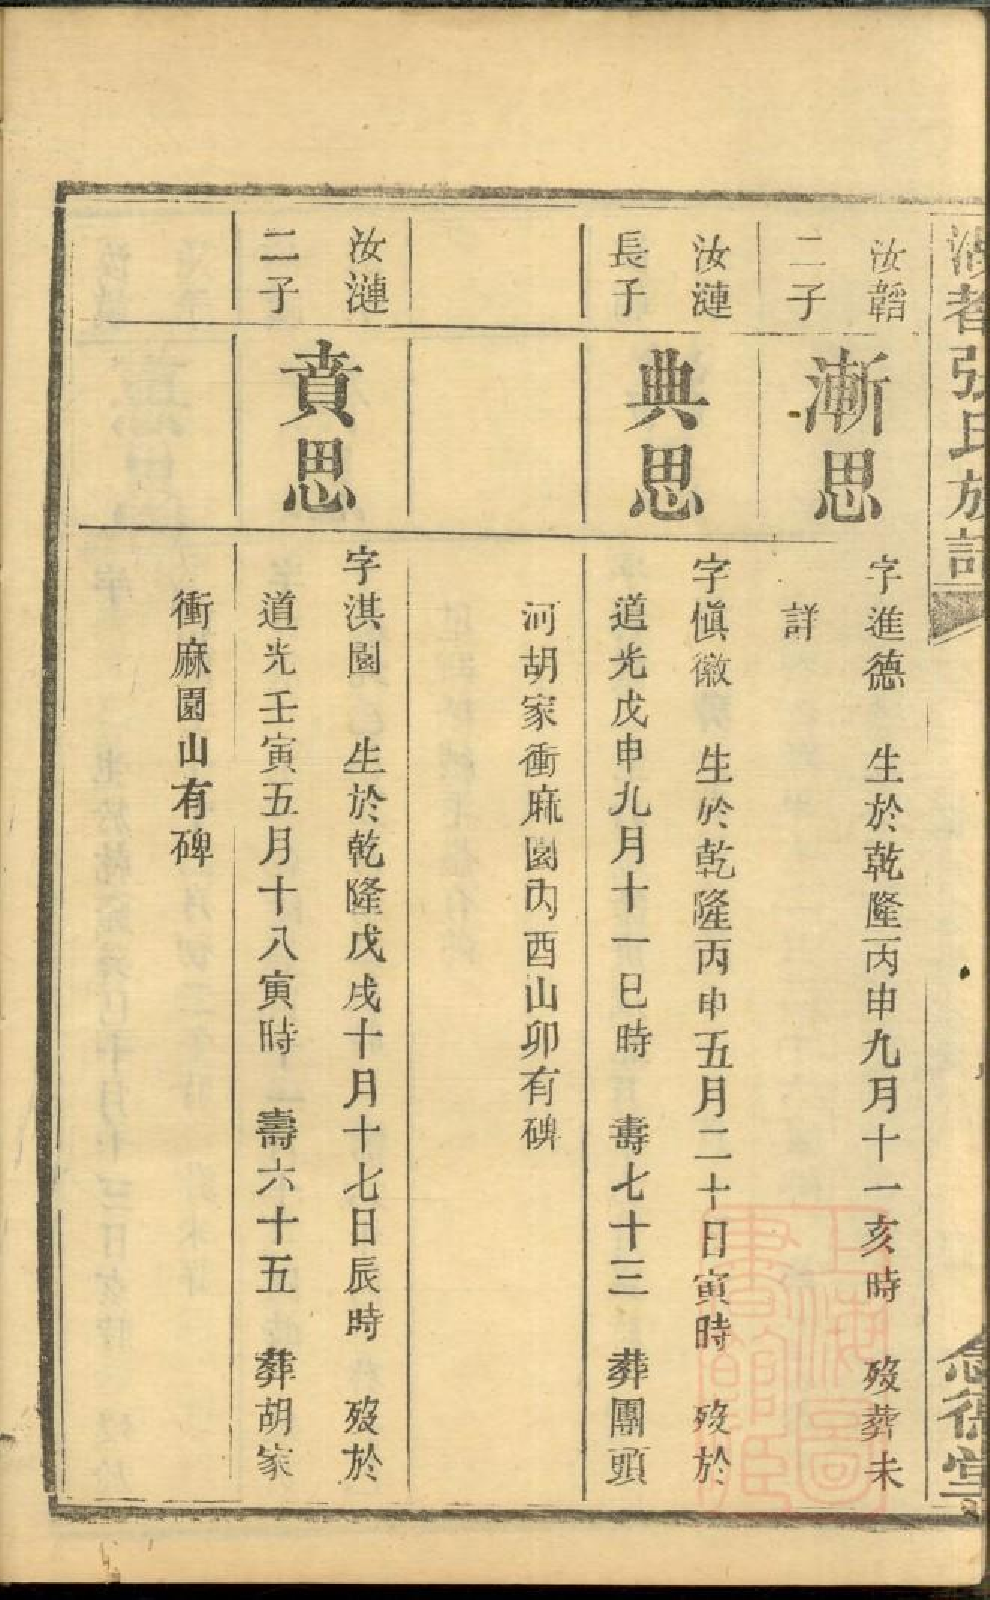 張氏族譜
念德堂
汝韜
二子
漸思
字進德　生於乾隆丙申九月十一亥時　歿葬未
詳
汝漣
長子
典思
字愼徽　生於乾隆丙申五月二十日寅時　歿於
道光戊申九月十一巳時　壽七十三　葬團頭
河胡家衝麻園內酉山卯有碑
汝漣
二子
賁思
字淇園　生於乾隆戊戌十月十七日辰時　歿於
道光壬寅五月十八寅時　壽六十五　葬胡家
衝麻園山有碑